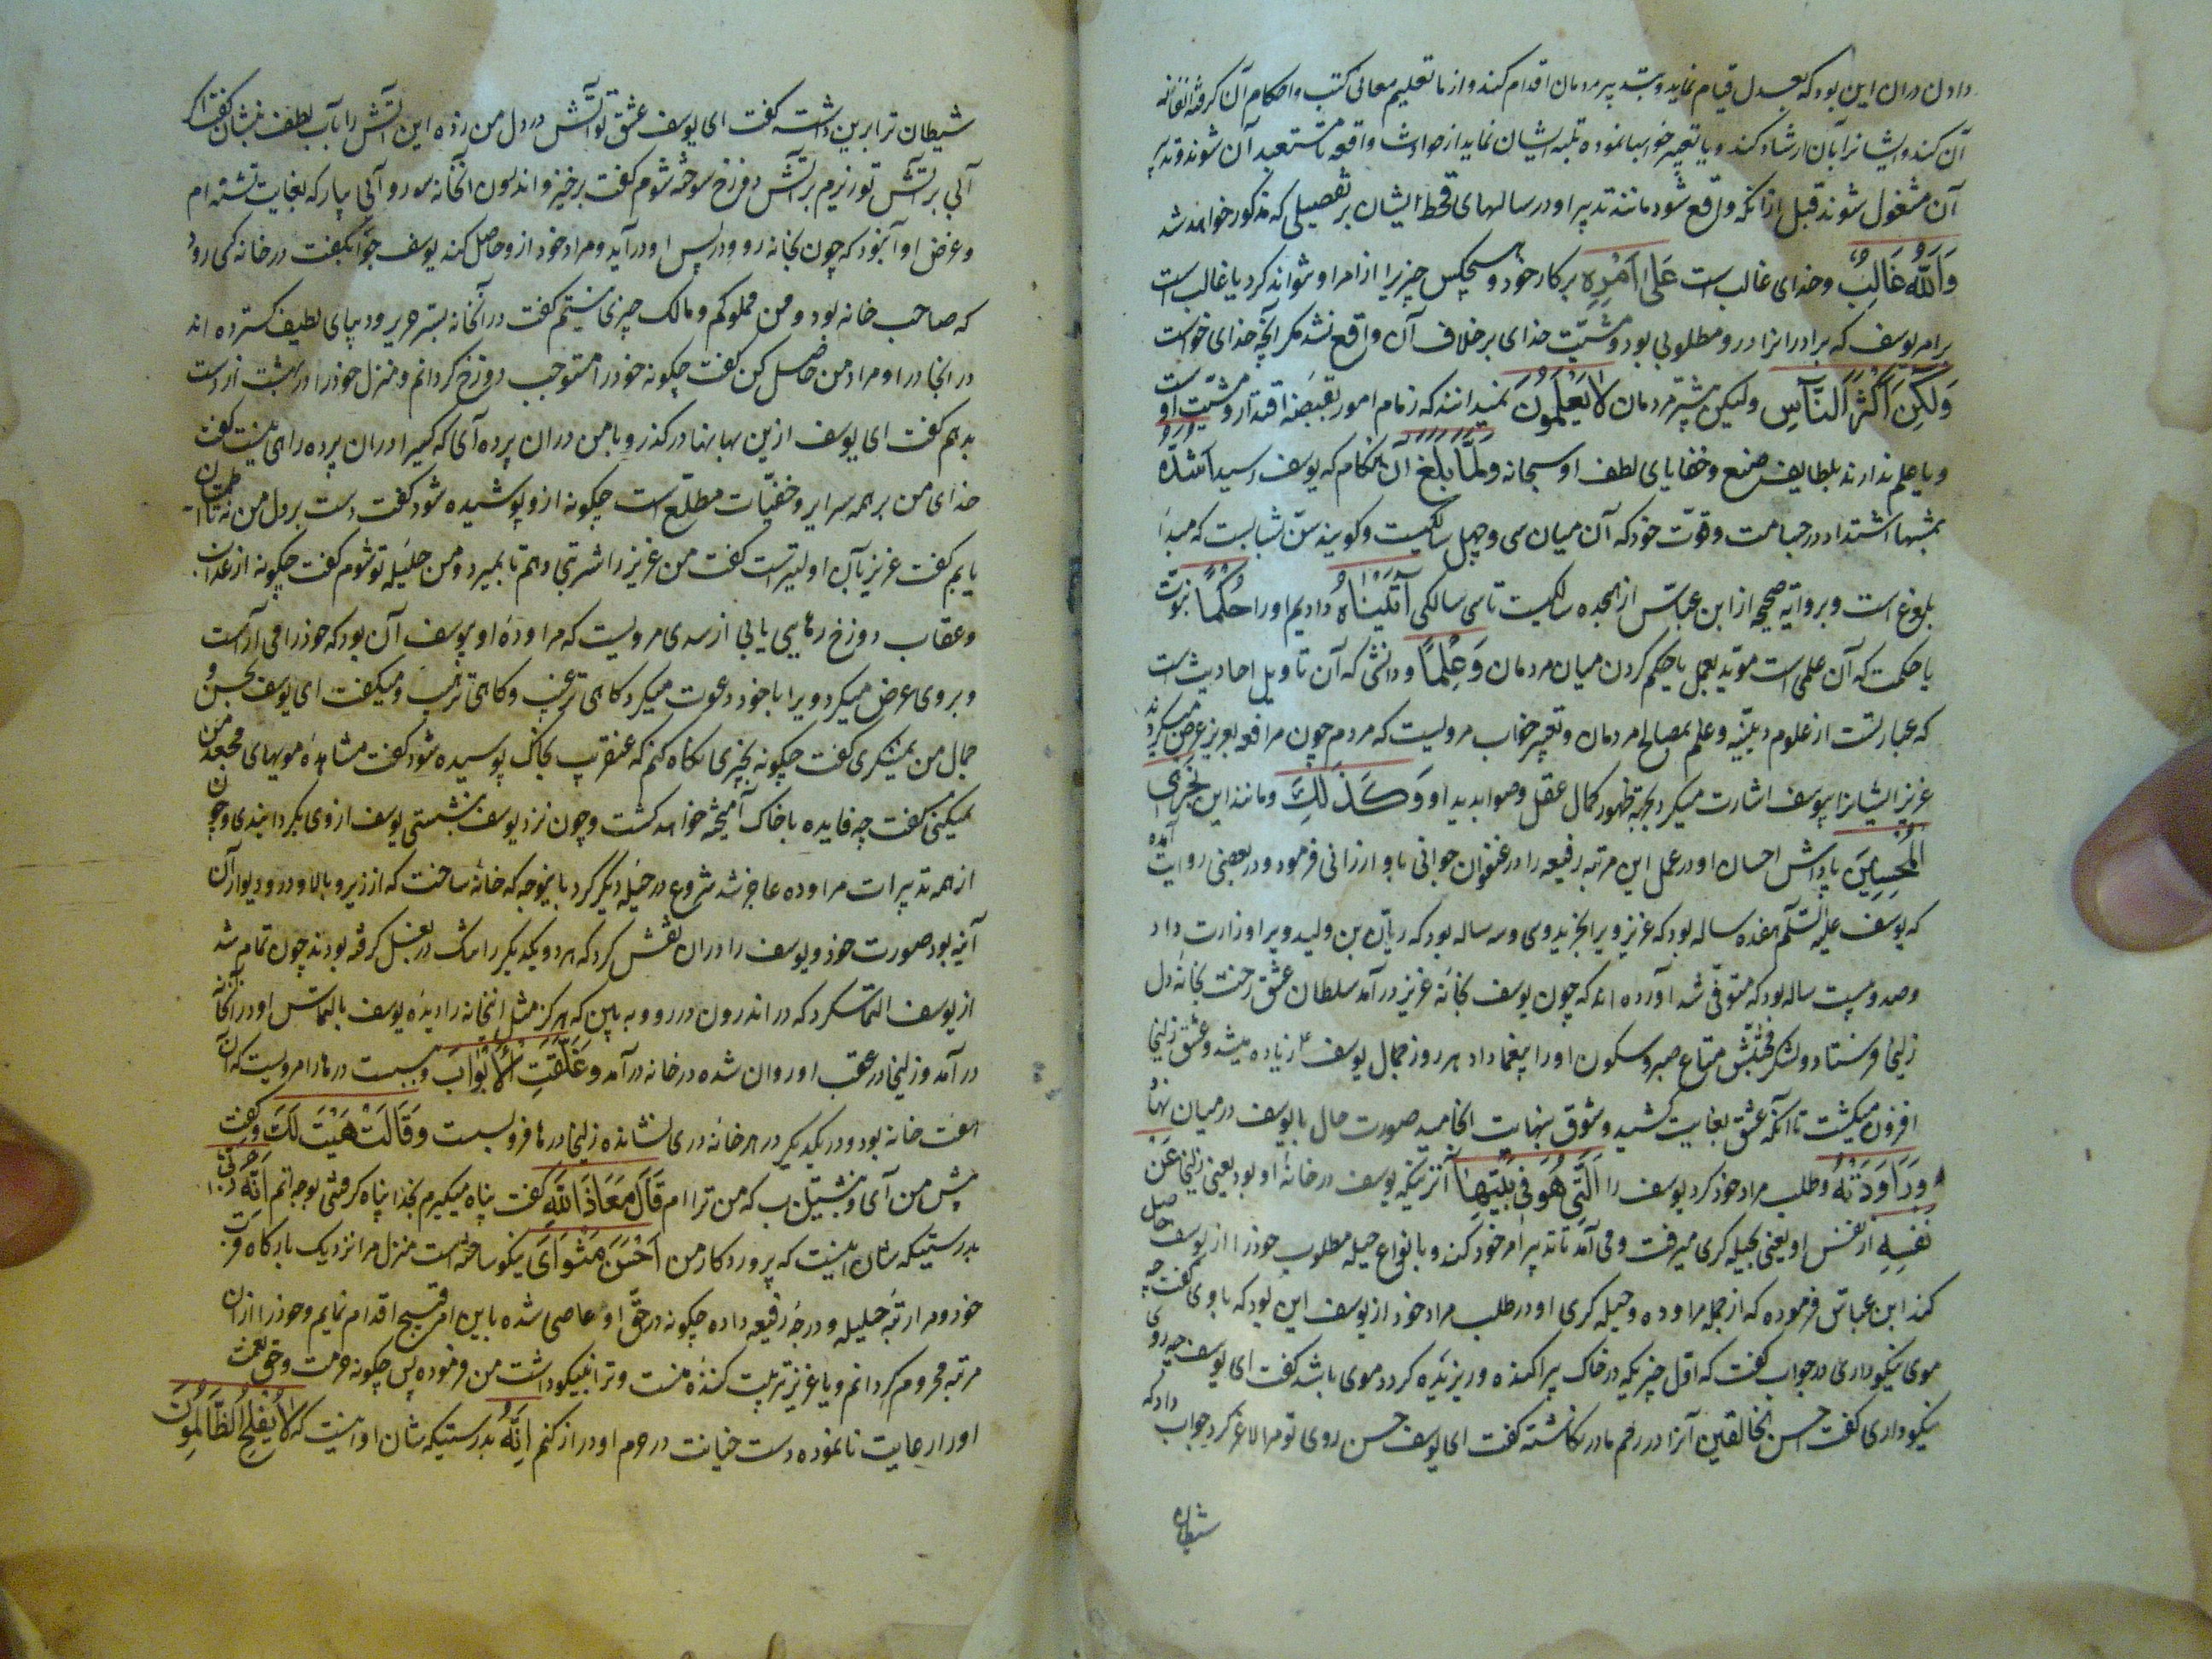 دادن دران این بود که بعدل قیام نماید و بتدبیر مردمان اقدام کند و از ما تعلیم معانی کتب و احکام آن گرفته
آن کند و ایشانرا بآن ارشاد کند و یا تعبیر خوابها نموده تنبیه ایشان نماید از حوادث واقعه تا مستعد آن شوند و بتدبیر
آن مشغول شوند قبل ازانکه واقع شود مانند تدبیر او در سالهای قحط ایشان بر تفصیلی که مذکور خواهد شد
وَاللّٰهُ غَالِبٌ و خدای غالب است عَلٰی اَمْرِهِ بر کار خود و هیچکس چیزیرا از امر او نتواند کرد یا غالب است
بر امر یوسف که برادرانرا درو مطلوبی بود و مشیّت خدای بر خلاف آن واقع نشد مگر آنچه خدای خواست
وَلٰکِنَّ اَکْثَرَ النَّاسِ ولیکن بیشتر مردمان لَا یَعْلَمُونَ نمیدانند که زمام امور بقبضهٔ اقتدار و مشیّت اوست
و یا علم ندارند بلطایف صنع و خفایای لطف او سبحانه وَلَمَّا بَلَغَ آن هنگام که یوسف رسید اَشُدَّهُ
بمنتهای اشتداد در جسامت و قوّت خود که آن میان سی و چهل سالگیست و گویند سنّ شبابست که مبدأ
بلوغ است و بروایة صحیحه از ابن عبّاس از هجده سالگیست تا سی سالگی اٰتَیْنَاهُ دادیم او را حُکْمًا نبوّت
یا حکمت که آن علمی است مؤید بعمل یا حکم کردن میان مردمان وَعِلْمًا و دانشی که آن تاویل احادیث است
که عبارتست از علوم دینیّه و علم بمصالح مردمان و تعبیر خواب مرویست که مردم چون مرافعه بعزیز عرض میکردند
عزیز ایشانرا بیوسف اشارت میکرد بجهة ظهور کمال عقل و صوابدید او وَکَذٰلِکَ و مانند این نَجْزِی
الْمُحْسِنِینَ پاداش احسان او در عمل این مرتبه رفیعه را در عنفوان جوانی باو ارزانی فرمود و در بعضی روایت آمده
که یوسف علیه السّلام هفده ساله بود که عزیز ویرا بخرید و سی و سه ساله بود که ریّان بن ولید ویرا وزارت داد
و صد و بیست ساله بود که متوفّی شد آورده اند که چون یوسف بخانهٔ عزیز درآمد سلطان عشق رخت بخانهٔ دل
زلیخا فرستاد و لشکر محبّتش متاع صبر و سکون او را بیغما داد هر روز جمال یوسف ع زیاده میشد و عشق زلیخا
افزون میگشت تا آنکه عشق بغایت کشید و شوق بنهایت انجامید صورت حال با یوسف در میان نهاد
وَرَاوَدَتْهُ و طلب مراد خود کرد یوسف را الَّتِی هُوَ فِی بَیْتِهَا آنزنیکه یوسف در خانهٔ او بود یعنی زلیخا عَنْ
نَفْسِهِ از نفس او یعنی بحیله گری میرفت و می آمد تا تدبیر امر خود کند و بانواع حیله مطلوب خود را از یوسف حاصل
کند ابن عباس فرموده که از جمله مراوده و حیله گری او در طلب مراد خود از یوسف این بود که باوی گفت چه
موی نیکو داری در جواب گفت که اوّل چیزیکه در خاک پراکنده و ریزیده گردد موی باشد گفت ای یوسف چه روی
نیکو داری گفت احسن الخالقین آنرا در رحم مادر نگاشته گفت ای یوسف حسن روی تو مرا لاغر کرد جواب داد که
شیطان
شیطان ترا برین داشته گفت ای یوسف عشق تو آتش در دل من زده این آتش را بآب لطف بنشان گفت اگر
آبی بر آتش تو ریزم بر آتش دوزخ سوخته شوم گفت برخیز و اندرون آنخانه رو و آبی بیار که بغایت تشنه ام
و غرض او آنبود که چون بخانه رود در پس او درآید و مراد خود ازو حاصل کند یوسف جواب گفت در خانه کی رود
که صاحب خانه بود و من مملوکم و مالک چیزی نیستم گفت در آنخانه بستر حریر و دیبای لطیف گسترده اند
در آنجا درا و مراد من حاصل کن گفت چگونه خود را مستوجب دوزخ گردانم و منزل خود را در بهشت از دست
بدهم گفت ای یوسف ازین بهانها درگذر و با من دران پرده آی که کسی را دران پرده راهی نیست گفت
خدای من بر همه سرایر و خفیّات مطلع است چگونه ازو پوشیده شود گفت دست بر دل من نه تا اطمینان
یابم گفت عزیز بآن اولیتر است گفت من عزیز را شربتی دهم تا بمیرد و من حلیلهٔ تو شوم گفت چگونه از عذاب
و عقاب دوزخ رهایی یابی از سدی مرویست که مراودهٔ او بیوسف آن بود که خود را می آراست
و بروی عرض میکرد و یرا با خود دعوت میکرد گاهی ترغیب و گاهی ترهیب و میگفت ای یوسف بحسن و
جمال من نمینگری گفت چگونه بچیزی نگاه کنم که عنقریب بخاک پوسیده شود گفت مشاهدهٔ مویهای مجعد من
نمیکنی گفت چه فایده با خاک آمیخته خواهد گشت و چون نزد یوسف بنشستی یوسف ازوی بگردانیدی و چون
از همه تدبیرات مراوده عاجز شد شروع در حیلهٔ دیگر کرد باینوجه که خانهٔ ساخت که از زیر و بالا و در و دیوار آن
آینه بود صورت خود و یوسف را دران نقش کرد که هر دو یکدیگر را تنگ در بغل گرفته بودند چون تمام شد
از یوسف التماس کرد که در اندرون در رو و به بین که هرگز مثل اینخانه را دیدهٔ یوسف بالتماس او در آنخانه
درآمد و زلیخا در عقب او روان شده در خانه درآمد وَغَلَّقَتِ الْاَبْوَابَ و ببست درها را مرویست که آن
هفت خانه بود در یکدیگر در هر خانه دری نشانده زلیخا درها فرو بست وَقَالَتْ هَیْتَ لَکَ و گفت
پیش من آی و بشتاب که من ترا ام قَالَ مَعَاذَ اللّٰهِ گفت پناه میگیرم بخدا پناه گرفتنی بوجه اتم اِنَّهُ رَبِّی
بدرستیکه شان اینست که پروردگار من اَحْسَنَ مَثْوَایَ نیکو ساخته است منزل مرا نزدیک بارگاه قرب
خود و مرا رتبهٔ جلیله و درجهٔ رفیعه داده چگونه در حقّ او عاصی شده باین امر قبیح اقدام نمایم و خود را ازان
مرتبه محروم گردانم و یا عزیز تربیت کنندهٔ منست و ترا بنیکوداشت من فرموده پس چگونه حرمت و حق نعمت
او را رعایت نانموده دست خیانت در حرم او دراز کنم اِنَّهُ بدرستیکه شان او اینست که لَا یُفْلِحُ الظَّالِمُونَ